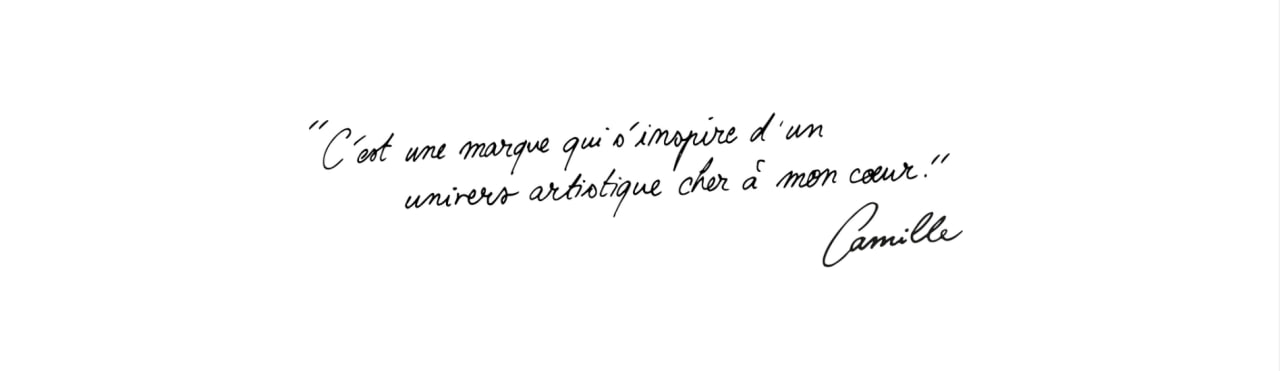 "C'est une marque qui s'inspire d'un
univers artistique cher à mon cœur."
Camille